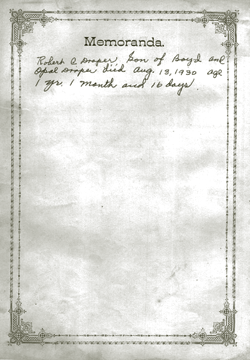 Memoranda.
Robert A Draper, Son of Boyd and
Opal Draper died Aug. 18, 1930 age
1 yr. 1 month and 16 days.